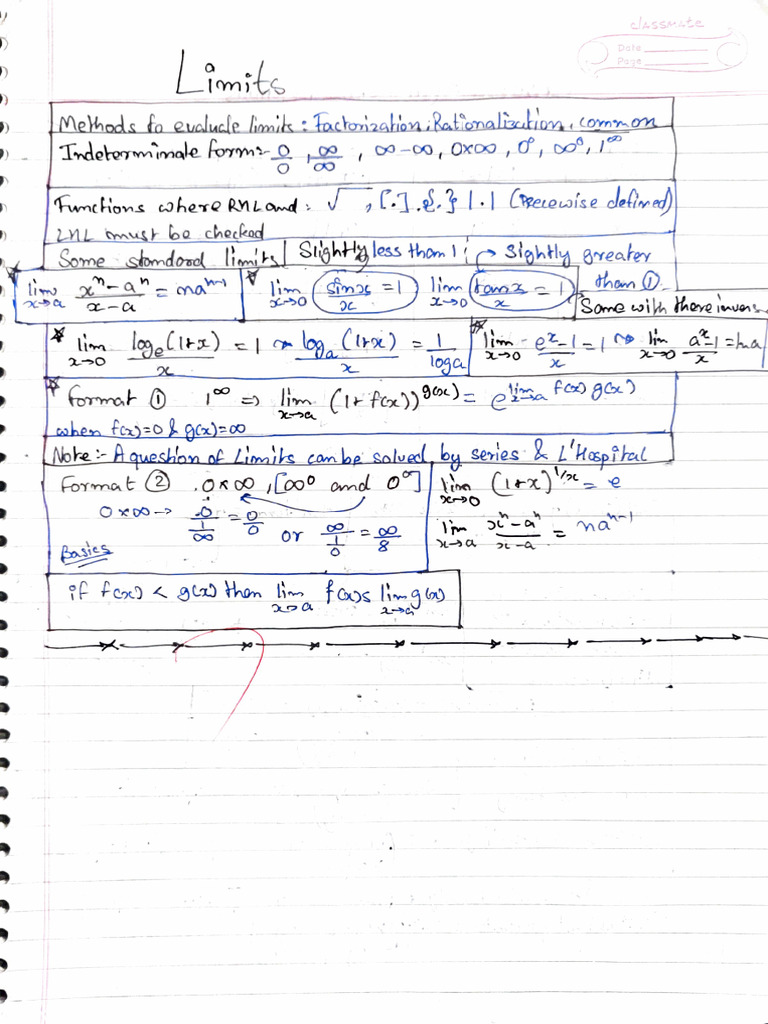 classmate
Date
Page
Limits
Methods to evaluate limits : Factorization, Rationalization, common
Indeterminate form:- 0/0, ∞/∞, ∞-∞, 0×∞, 0⁰, ∞⁰, 1^∞
Functions where RHL and : √ , [.] , {.} |.| (Piecewise defined)
LHL must be checked
Some standard limits | Slightly less than 1 ; → Sightly greater than ①
lim x→a (xⁿ-aⁿ)/(x-a) = naⁿ⁻¹ lim x→0 sinx/x = 1 lim x→0 tanx/x = 1
Same with there
lim x→0 log_e(1+x)/x = 1 → log_a(1+x)/x = 1/loga lim x→0 (eˣ-1)/x = 1 → lim x→0 (aˣ-1)/x = lna
Format ① 1^∞ ⇒ lim x→a (1+f(x))^g(x) = e^lim x→a f(x) g(x)
when f(x)=0 & g(x)=∞
Note :- A question of Limits can be solved by series & L'Hospital
Format ② 0×∞, [∞⁰ and 0⁰] lim x→0 (1+x)^1/x = e
0×∞ → 0/(1/∞) = 0/0 or ∞/(1/0) = ∞/8 lim x→a (xⁿ-aⁿ)/(x-a) = naⁿ⁻¹
Basics
if f(x) < g(x) then lim x→a f(x) ≤ lim x→a g(x)